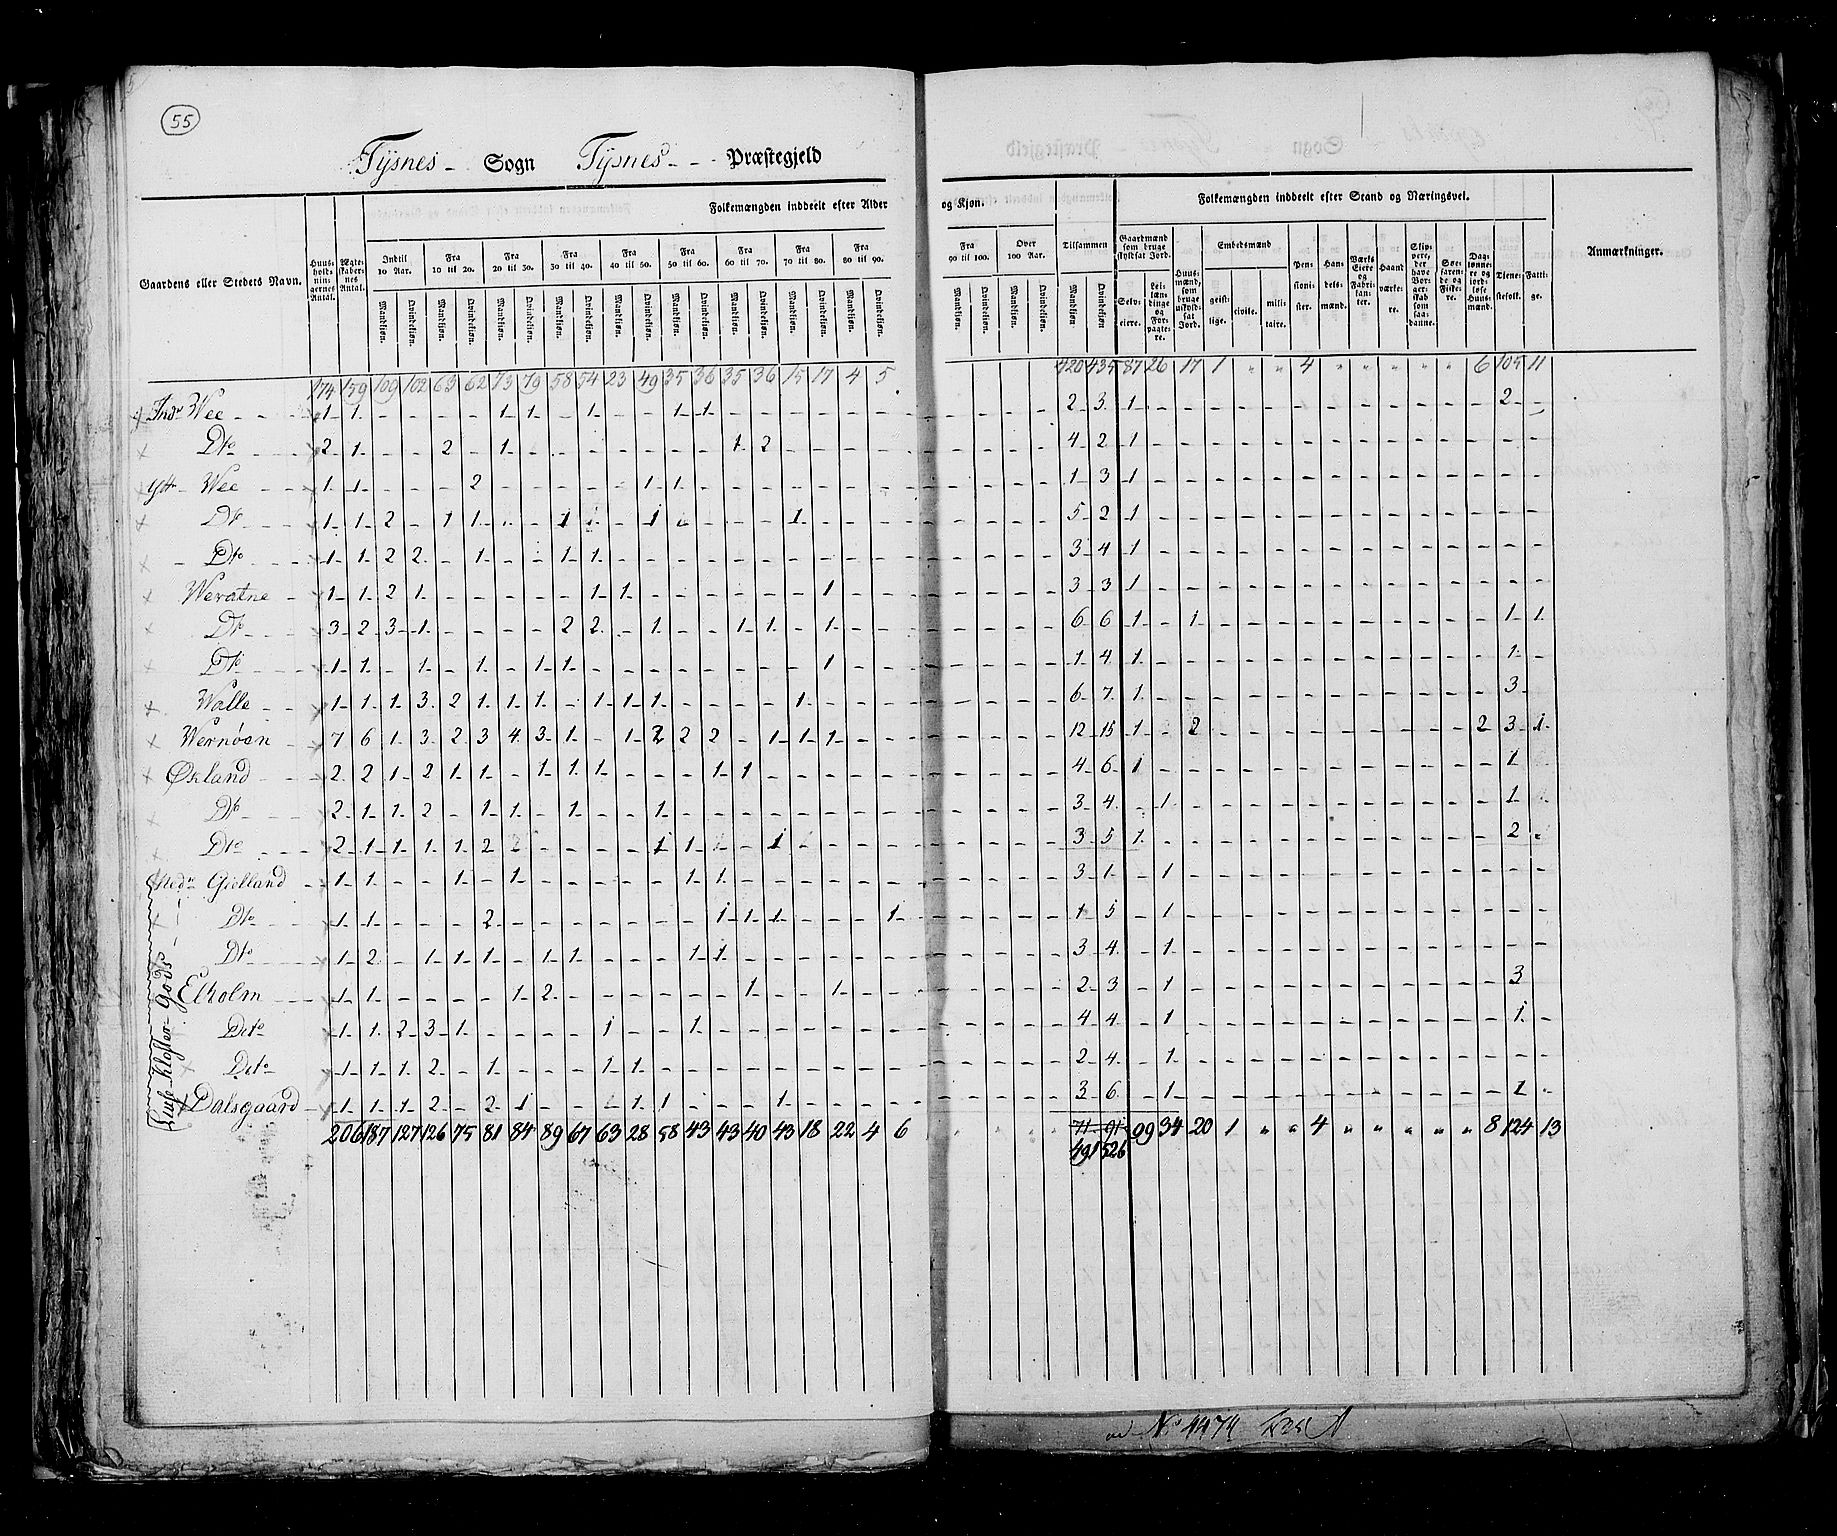 55
Tysnes - Sogn Tysnes - Præstegjeld
Folkemængden inddeelt efter Alder og Kjøn.
Folkemængden inddeelt efter Stand og Næringsvei.
Gaardens eller Stedets Navn.
Huusholdningernes Antal.
Ægteskabernes Antal.
Indtil 10 Aar.
Fra 10 til 20.
Fra 20 til 30.
Fra 30 til 40.
Fra 40 til 50.
Fra 50 til 60.
Fra 60 til 70.
Fra 70 til 80.
Fra 80 til 90.
Fra 90 til 100.
Over 100 Aar.
Tilsammen
Mandkjøn. Qvindekjøn.
Gaardmænd som bruge skyldsat Jord.
Selveiere.
Leilændinge og Forpagtere.
Huusmænd, som bruge uskyldsat Jord.
Embedsmænd
geistlige. civile. militaire.
Pensionister.
Handelsmænd.
Værks Eiere og Fabrikanter.
Haandværkere.
Skippere, der have Borgerskab som saadanne.
Søefarende og Fiskere.
Daglønnere og jordløse Huusmænd.
Tjenestefolk.
Fattige.
Anmærkninger.
174 159 109 102 63 62 73 79 58 54 23 49 35 36 35 36 15 17 4 5 420 435 87 26 17 1 " " 4 " " " " " 6 105 11
Indr Wee 1 1 1 1 1 1 1 2 3 1 2
Dto 2 1 2 1 1 2 4 2 1
Ytt Wee 1 1 2 1 1 1 3 1
Dto 1 1 2 1 1 1 1 1 5 2 1
Dto 1 1 2 2 1 1 1 3 4 1
Weratne 1 1 2 1 1 1 1 3 3 1
Dto 3 2 3 1 2 2 1 1 1 1 6 6 1 1 1 1
Dto 1 1 1 1 1 1 1 1 4 1 1
Walle 1 1 1 3 2 1 1 1 1 1 1 1 6 7 1 3
Wernøen 7 6 1 3 2 3 4 3 1 1 2 2 2 1 1 1 12 15 1 2 2 3 1
Økland 2 2 1 2 1 1 1 1 1 1 1 4 6 1 1
Dto 2 1 1 2 1 1 1 1 3 4 1 1
Dto 2 1 1 1 1 2 1 1 1 3 5 1 2
Nedr Giølland 1 1 1 1 1 1 3 1 1
Dto 1 1 2 1 1 1 1 1 5 1
Dto 1 2 1 1 1 1 1 1 1 3 4 1
Elholm 1 1 1 2 1 1 2 3 1 3
Deto 1 1 2 3 1 1 1 4 4 1 1
Deto 1 1 1 2 1 1 1 2 4 1
Dalsgaard 1 1 1 2 2 1 1 1 1 3 6 1 1
Lyse Kloster Gods
206 187 127 126 75 81 84 89 67 63 28 58 43 43 40 43 18 22 4 6 71 91 99 34 20 1 " " 4 " " " " " 8 124 13
491 526